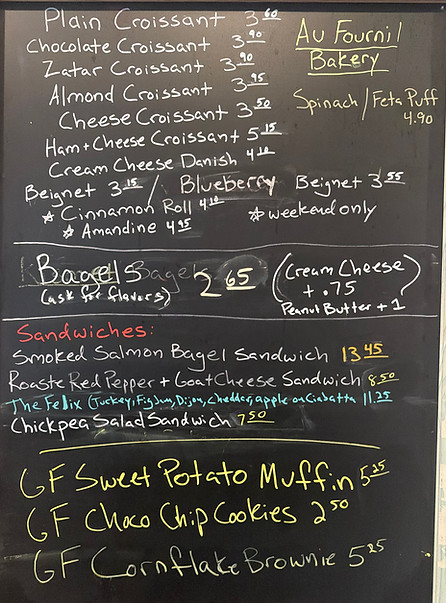 Plain Croissant 3.60
Au Fournil
Bakery
Chocolate Croissant 3.90
Zatar Croissant 3.90
Almond Croissant 3.95
Spinach/Feta Puff
4.90
Cheese Croissant 3.50
Ham + Cheese Croissant 5.15
Cream Cheese Danish 4.10
Beignet 3.15 / Blueberry Beignet 3.55
* Cinnamon Roll 4.10
* weekend only
* Amandine 4.95
Bagels 2.65
(ask for flavors)
(Cream Cheese
+ .75
Peanut Butter + 1)
Sandwiches:
Smoked Salmon Bagel Sandwich 13.45
Roaste Red Pepper + Goat Cheese Sandwich 8.50
The Felix (Turkey, Fig Jam, Dijon, cheddar, apple on Ciabatta 11.25
Chickpea Salad Sandwich 7.50
GF Sweet Potato Muffin 5.25
GF Choco Chip Cookies 2.50
GF Cornflake Brownie 5.25